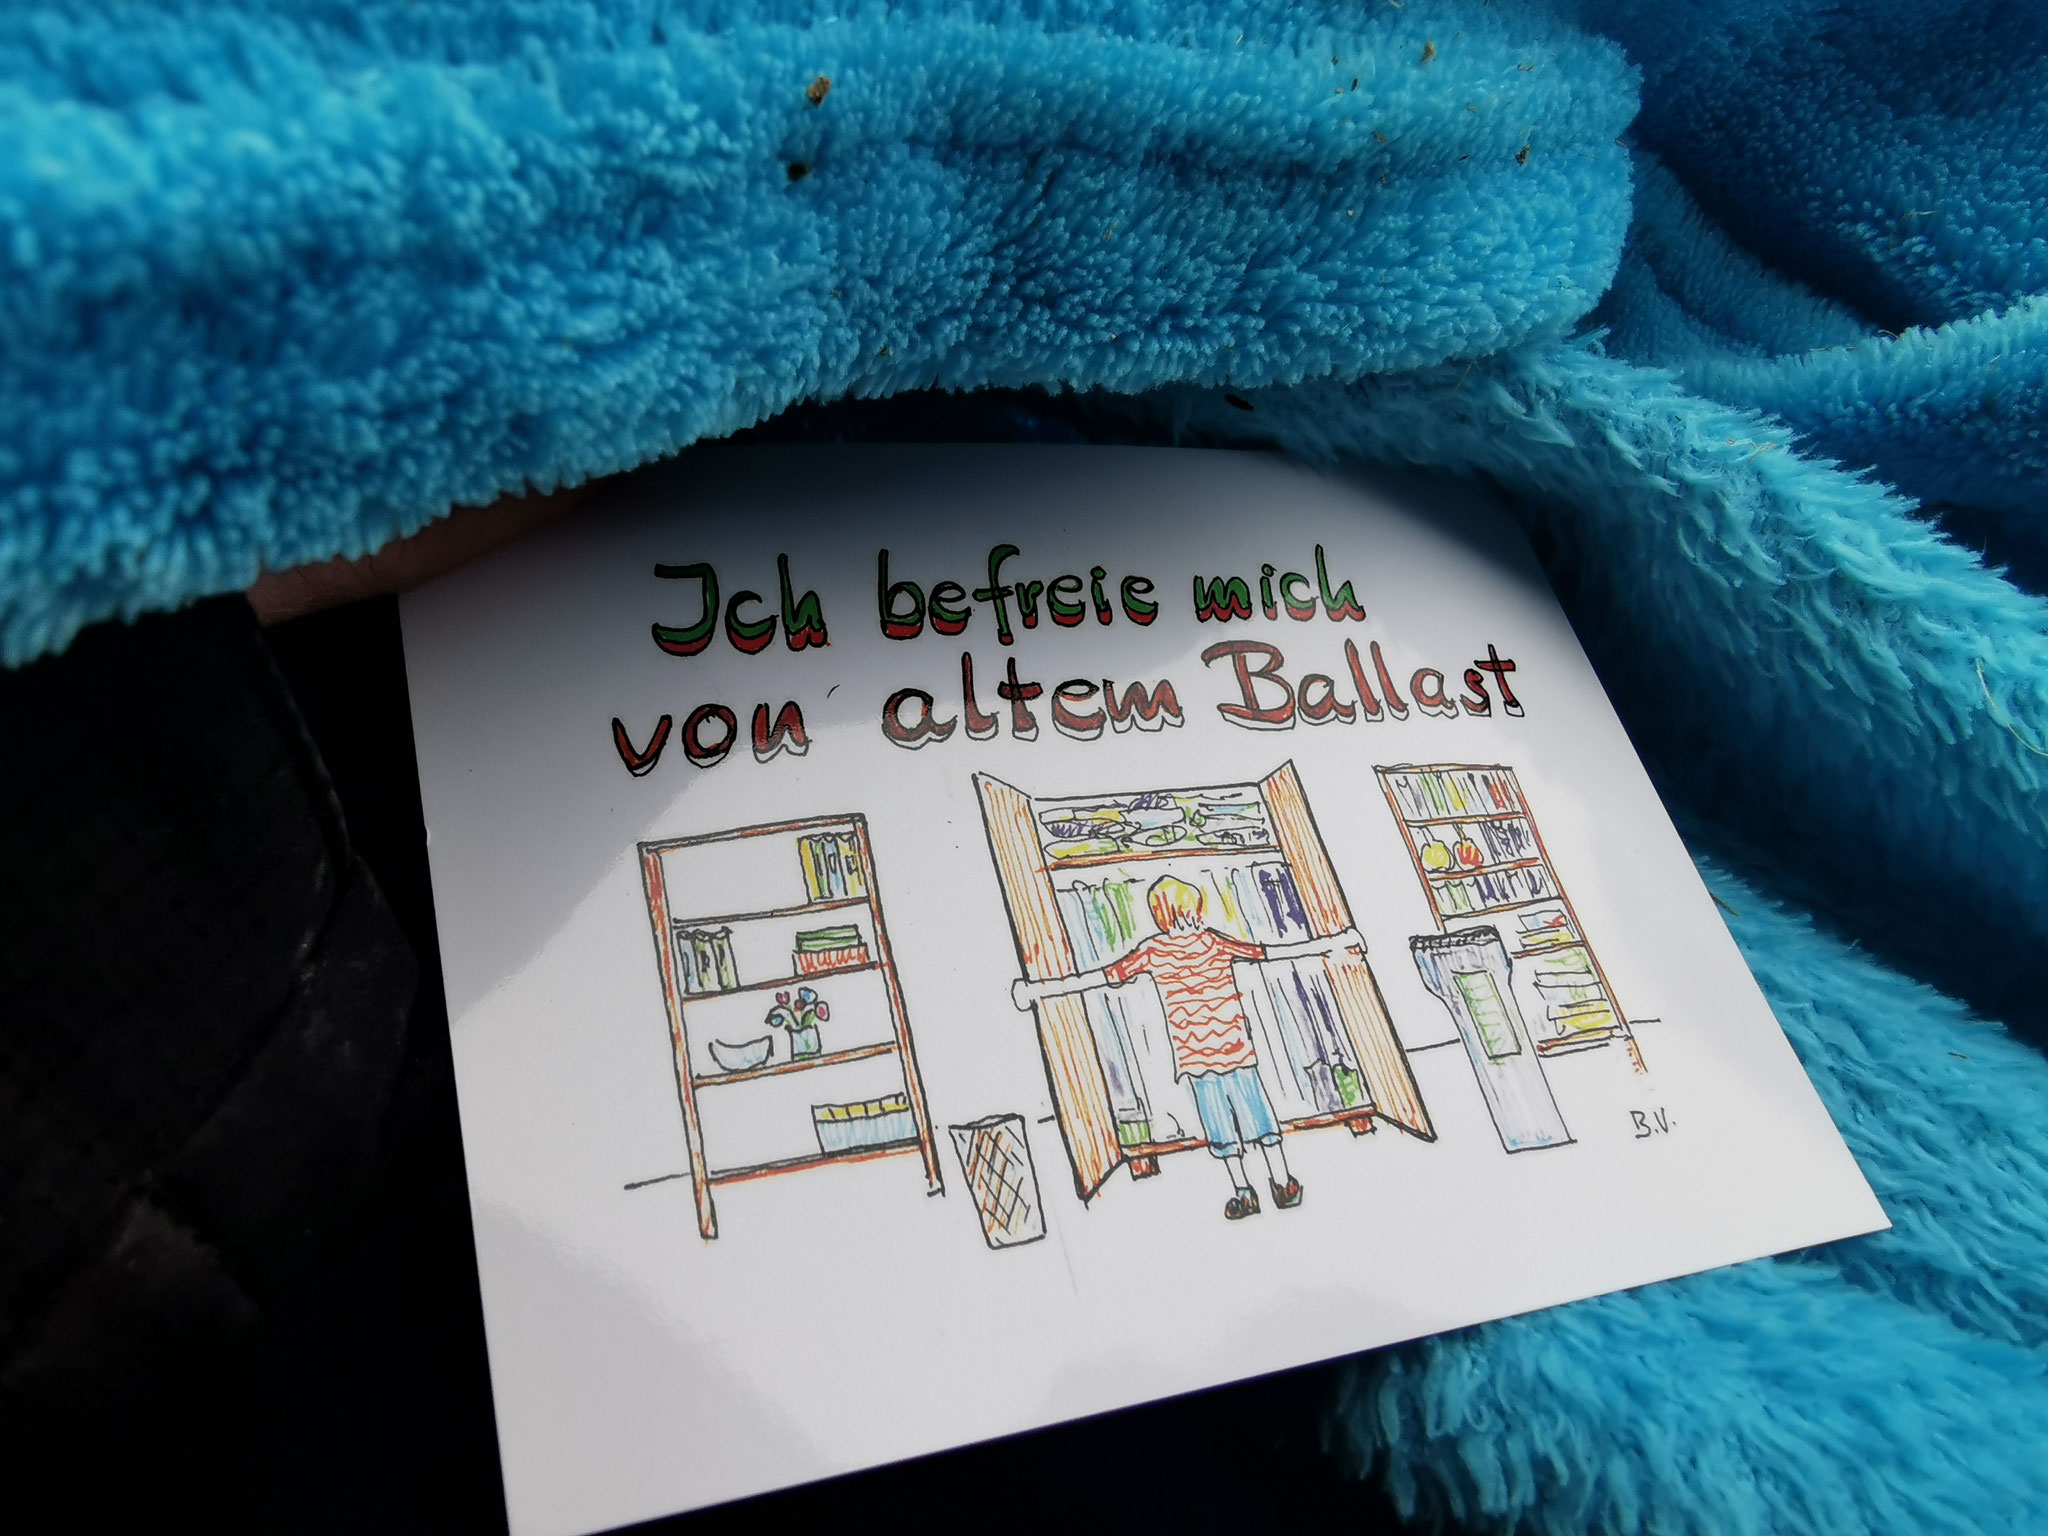 Ich befreie mich
von altem Ballast
B.V.